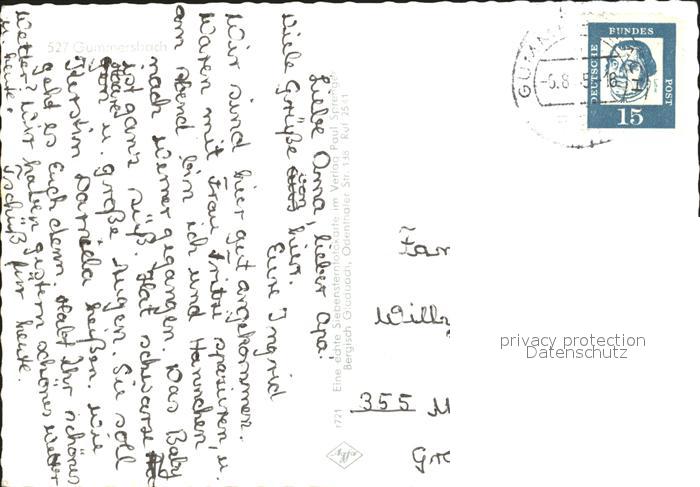 527 Gummersbach
Liebe Oma, lieber Opa.
Viele Grüße von hier.
Eure Ingrid
Wir sind hier gut angekommen.
Waren mit Frau Fritze spazieren, u.
am abend bin ich und Hannchen
nach Werner gegangen. Das Baby
ist ganz süß. Hat schwarze
Haare u. große Augen. Sie soll
Kerstin Daniela heißen. Wie
geht es Euch denn. Habt Ihr schönes
Wetter? Wir haben gestern schönes Wetter
heute. Tschüß für heute.
r721 Eine echte Siebensternfotokarte im Verlag Paul
Bergisch Gladbach, Odenthaler Str. 136 Ruf 2541
GUMM
-5.8
DEUTSCHE
BUNDES
POST
15
Willy
355 M
privacy protection
Datenschutz